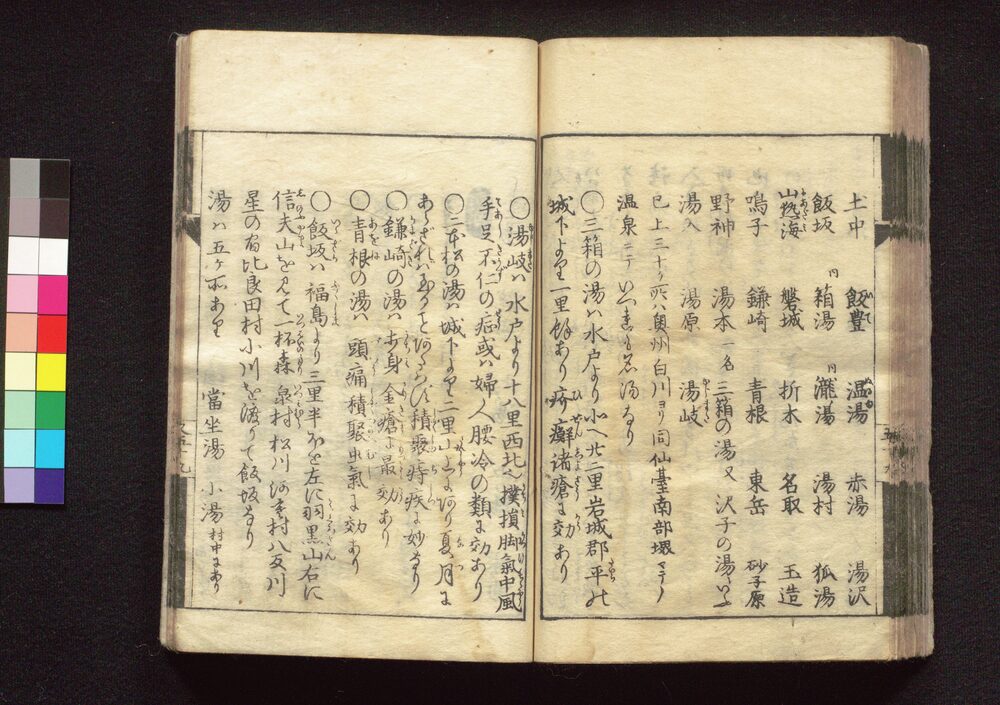 土中 飯豊 温湯 赤湯 湯沢
飯坂 箱湯 瀧湯 湯村 狐湯
山熱海 磐城 折木 名取 玉造
鳴子 鎌崎 青根 東岳 砂子原
野神 湯本 一名 三箱の湯又 沢子の湯
湯入 湯原 湯岐
已上三十ヶ所ハ奥州白川ヨリ同仙臺南部堺マテノ
温泉ニテ いつれも名湯なり
〇三箱の湯ハ水戸より小へ廿二里岩城郡平の
城下より一里餘あり 疥癬諸瘡に効あり
〇湯岐ハ 水戸より十八里西北へ 撲損脚氣中風
手足不仁の症或ハ婦人腰冷の類に効あり
〇二本松の湯ハ城下より二里山上にあり夏月に
積聚痔疾に妙なり
〇鎌崎の湯ハ 金瘡に最効あり
〇青根の湯ハ 頭痛積聚虫氣に効あり
〇飯坂ハ 福島より三里半ほと左に羽黒山右に
信夫山を見て一杯森 泉村 松川 八反川
星の宮比良田村小川を渡りて飯坂なり
湯ハ五ヶ所あり 當坐湯 小湯 村中にあり